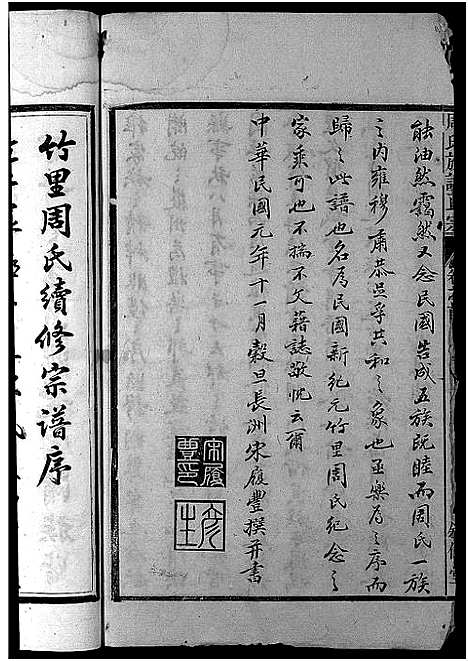 能油然靄然又念民國告成五族既睦而周氏一族
之內雍穆肅恭呈乎共和之象也亟樂為之序而
歸之此譜也名為民國新紀元竹里周氏紀念之
家乘可也不揣不文藉誌敬忱云爾
中華民國元年十一月穀旦長洲宋履豐撰并書
宋履
豐印
竹里周氏續修宗譜序